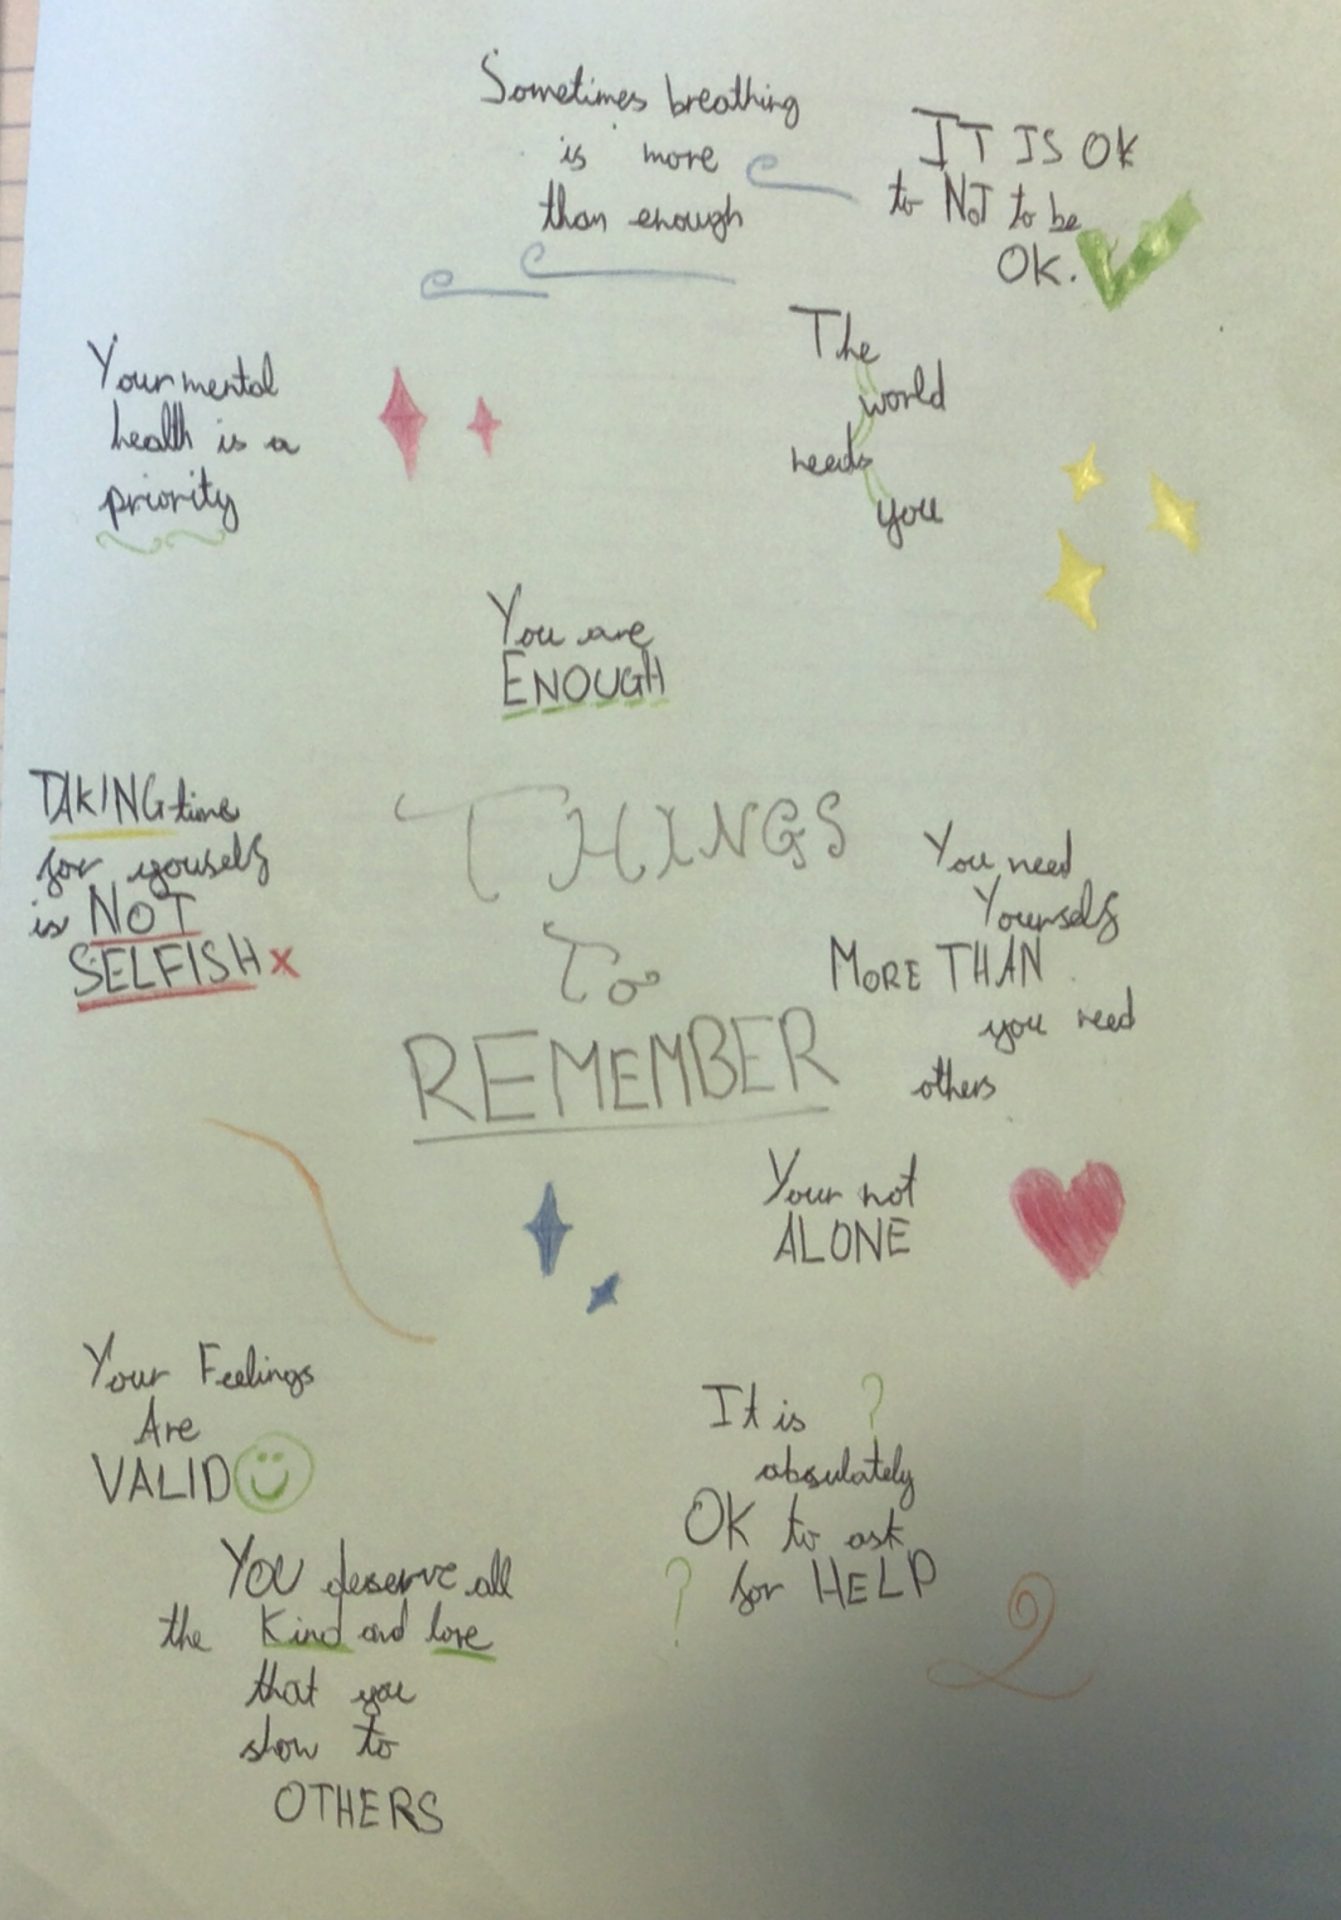 Sometimes breathing
is more
than enough
IT IS OK
to NOT to be
OK.
Your mental
health is a
priority
The
world
needs
you
You are
ENOUGH
TAKING time
for youself
is NOT
SELFISH x
THINGS
To
REMEMBER
You need
Yourself
MORE THAN
you need
others
Your not
ALONE
Your Feelings
Are
VALID
It is ?
absulately
OK to ask
? for HELP
YOU deserve all
the Kind and love
that you
show to
OTHERS